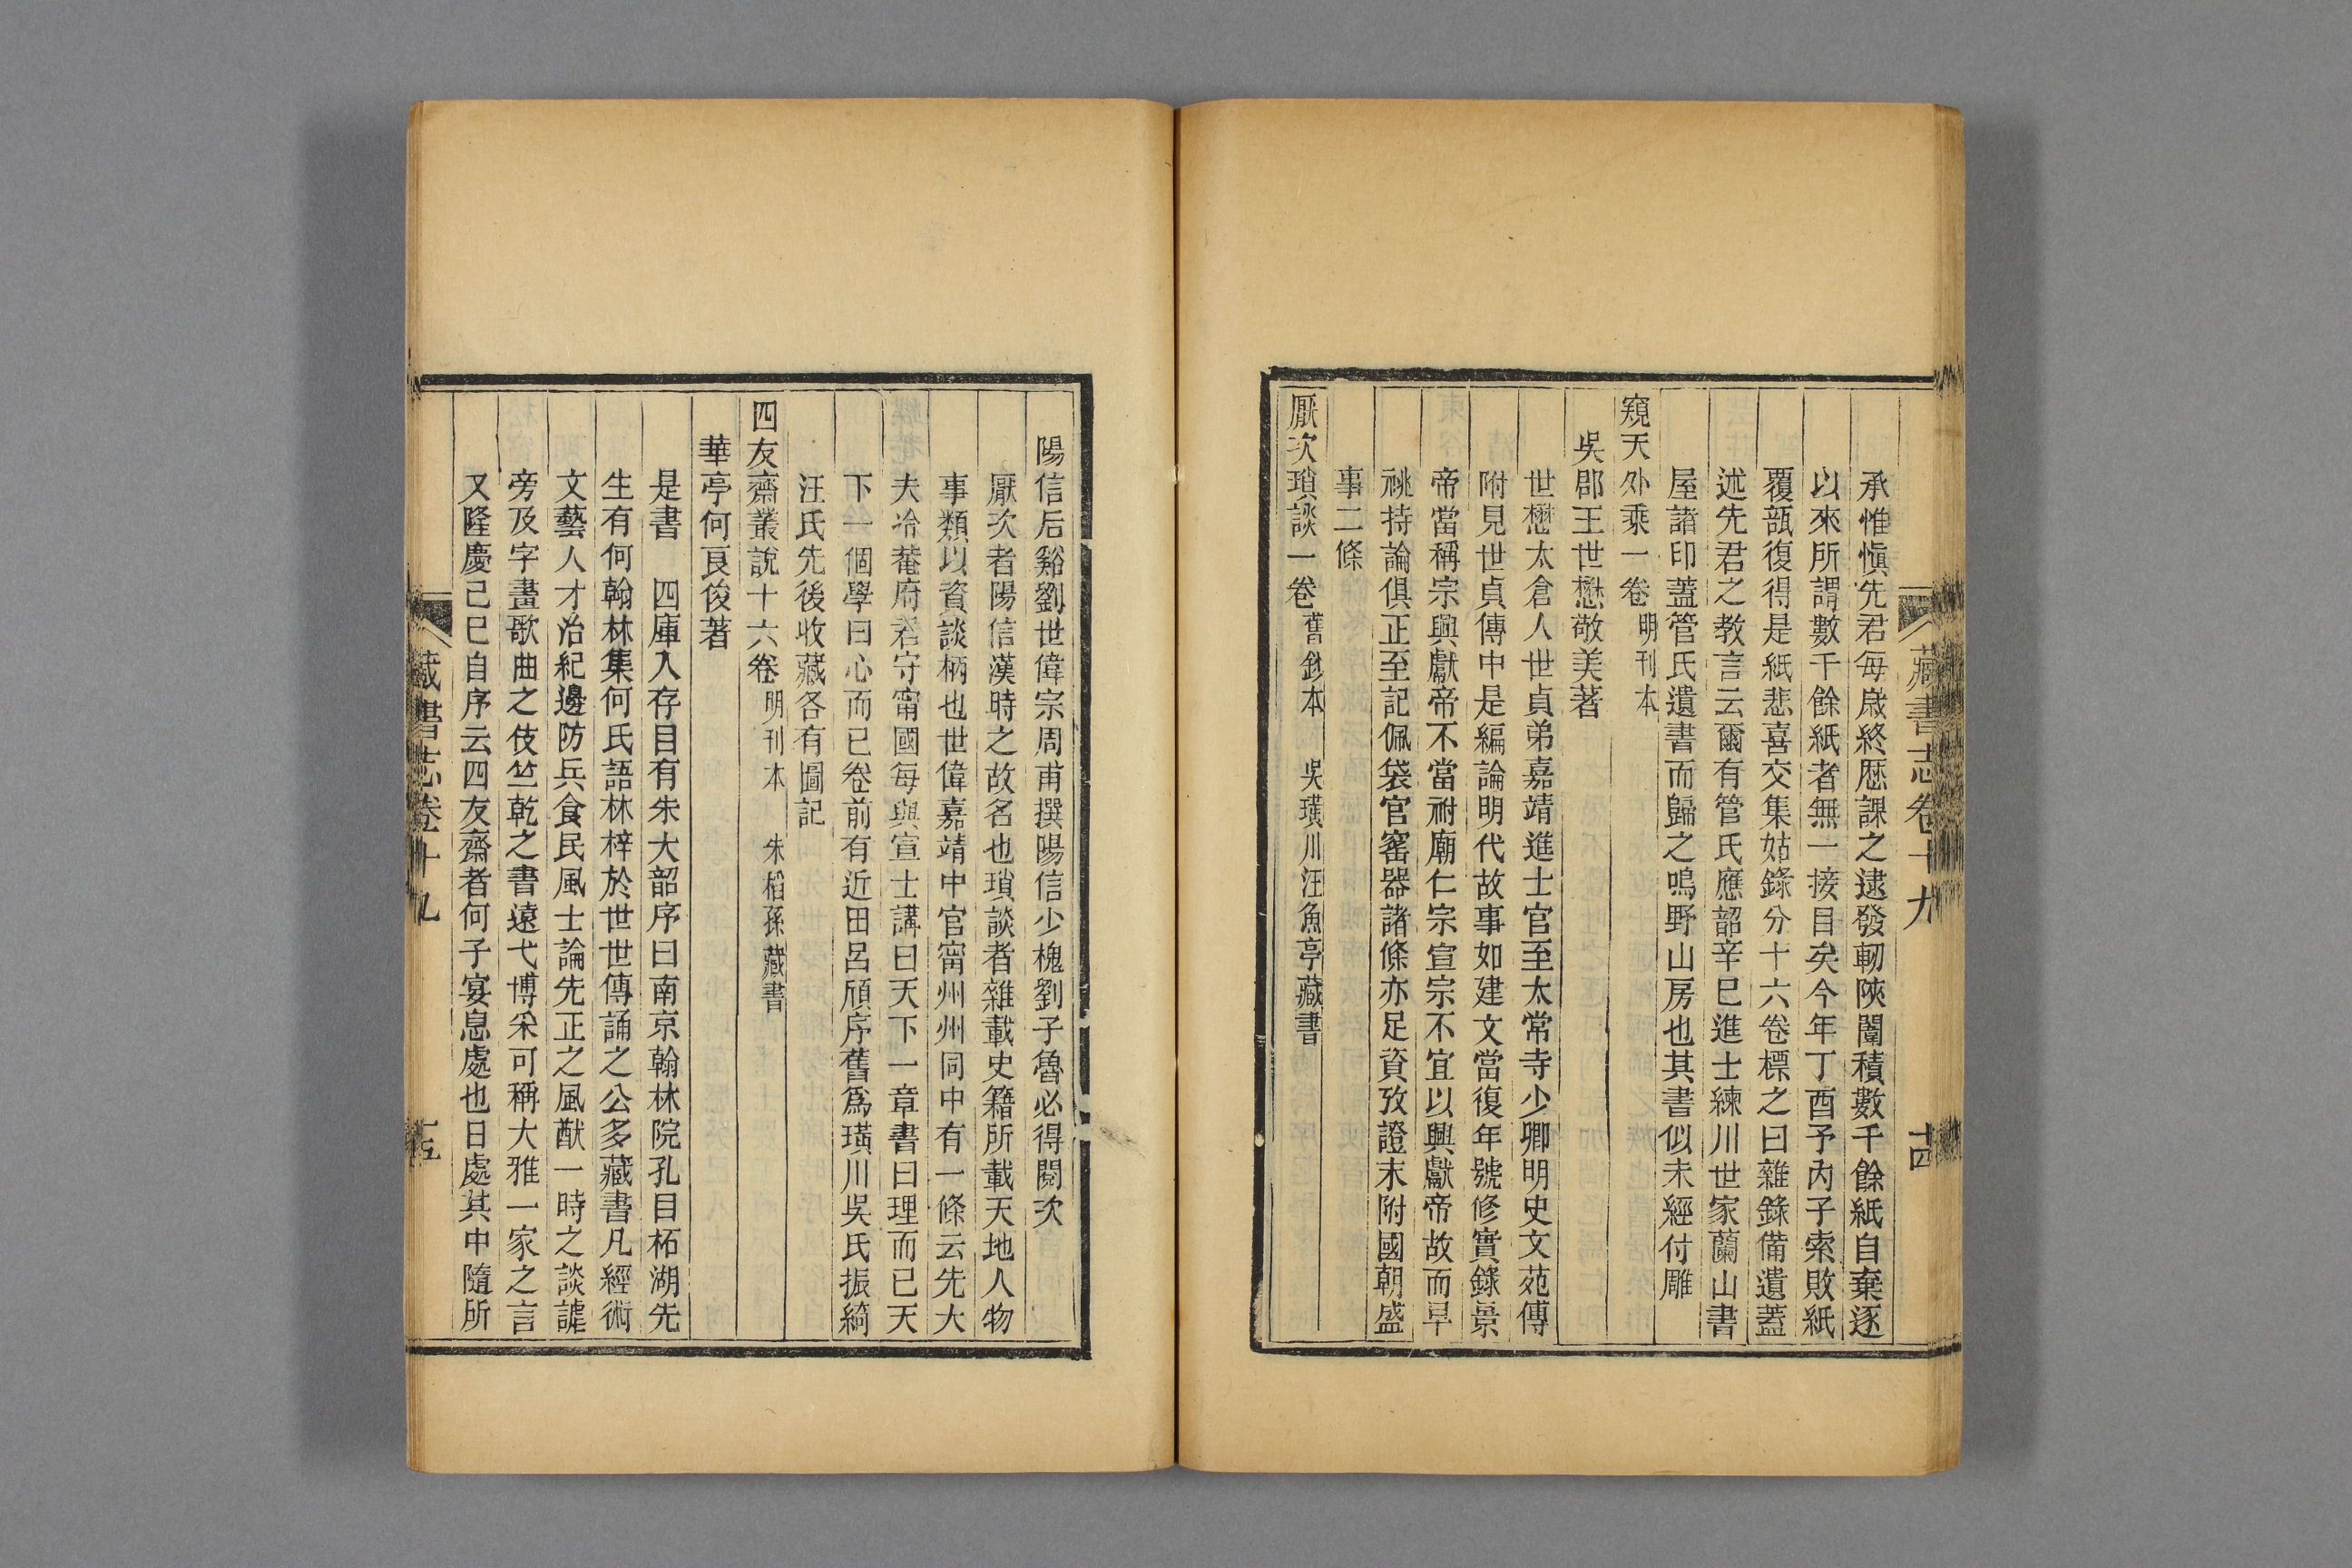 藏書志卷十九
十四
承惟愼先君每歲終歷課之逮發軔陝闈積數千餘紙自棄逐
以來所謂數千餘紙者無一接目矣今年丁酉予內子索敗紙
覆瓿復得是紙悲喜交集姑錄分十六卷標之曰雜錄備遺蓋
述先君之教言云爾有管氏應韶辛巳進士練川世家蘭山書
屋諸印蓋管氏遺書而歸之鳴野山房也其書似未經付雕
窺天外乘一卷 明刊本
吳郡王世懋敬美著
世懋太倉人世貞弟嘉靖進士官至太常寺少卿明史文苑傳
附見世貞傳中是編論明代故事如建文當復年號修實錄景
帝當稱宗興獻帝不當祔廟仁宗宣宗不宜以興獻帝故而早
祧持論俱正至記佩袋官窰器諸條亦足資攷證末附國朝盛
事二條
厭次瑣談一卷 舊鈔本 吳璜川汪魚亭藏書
陽信后谿劉世偉宗周甫撰陽信少槐劉子魯必得閱次
厭次者陽信漢時之故名也瑣談者雜載史籍所載天地人物
事類以資談柄也世偉嘉靖中官甯州州同中有一條云先大
夫冷菴府君守甯國每與宣士講曰天下一章書曰理而已天
下一個學曰心而已卷前有近田呂頎序舊爲璜川吳氏振綺
汪氏先後收藏各有圖記
四友齋叢說十六卷 明刊本 朱稻孫藏書
華亭何良俊著
是書 四庫入存目有朱大韶序曰南京翰林院孔目柘湖先
生有何翰林集何氏語林梓於世世傳誦之公多藏書凡經術
文藝人才治紀邊防兵食民風士論先正之風猷一時之談謔
旁及字畫歌曲之伎竺乾之書遠弋博采可稱大雅一家之言
又隆慶己巳自序云四友齋者何子宴息處也日處其中隨所
藏書志卷十九
十五